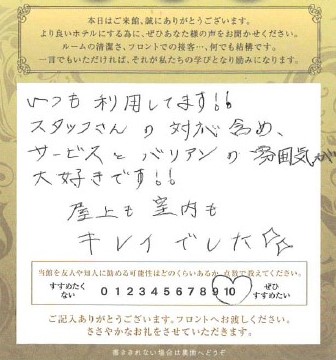 本日はご来館、誠にありがとうございます。
より良いホテルにする為に、ぜひあなた様の声をお聞かせください。
ルームの清潔さ、フロントでの接客…、何でも結構です。
一言でもいただければ、それが私たちの学びとなり励みになります。
いつも利用してます!!
スタッフさんの対応含め、
サービスとバリアンの雰囲気が
大好きです!!
屋上も室内も
キレイでした☆☆
当館を友人や知人に勧める可能性はどのくらいあるか、点数で教えてください。
すすめたくない 0 1 2 3 4 5 6 7 8 9 10 ぜひすすめたい
ご記入ありがとうございます。フロントへお渡しください。
ささやかなお礼をさせていただきます。
書ききれない場合は裏面へどうぞ